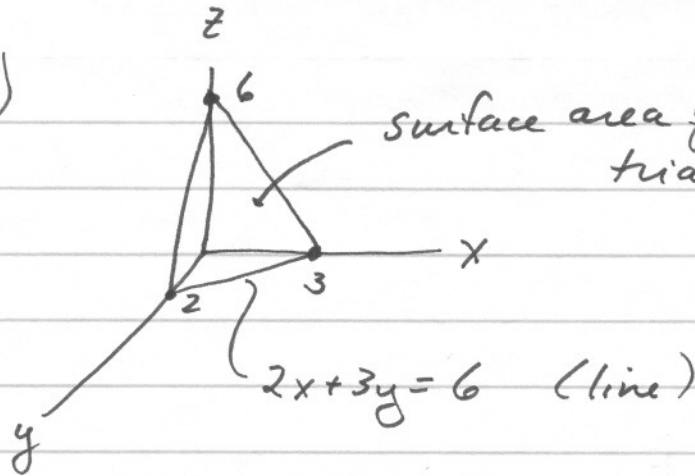 )
z
6
surface area
x
2
3
2x+3y=6 (line)
y